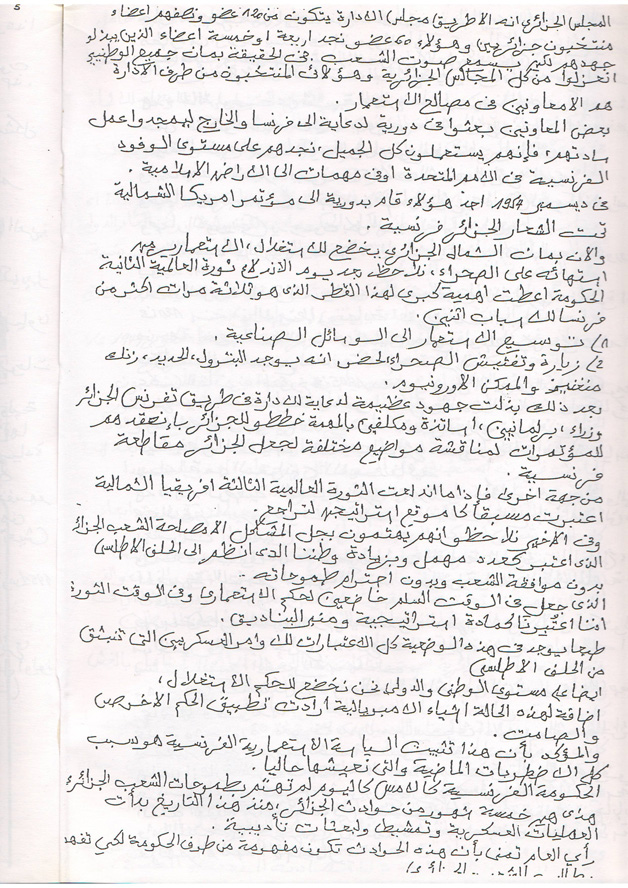 5
المجلس الجزائري انه الا طريق مجلس الادارة يتكون من 120 عضو ونصفهم اعضاء
منتخبون جزائريين وهؤلاء 60 عضو نجد اربعة او خمسة اعضاء الذين يبذلو
جهدهم لكي يسمع صوت الشعب. في الحقيقة بمان جميع الوطنيين
انعزلوا من كل المجالس الجزائرية وهؤلاء المنتخبون من طرف الادارة
هم الا معاونين في مصالح الاستعمار.
بعض المعاونين بعثوا في دورية لدعاية الى فرنسا والخارج ليمجدوا عمل
سادتهم، فإنهم يستعملون كل الجميل، نجدهم على مستوى الوفود
الفرنسية في الامم المتحدة او في مهمات الى الاراضي الاسلامية.
في ديسمبر 1954 احد هؤلاء قام بدورية الى مؤتمر امريكا الشمالية
تحت الشعار الجزائر فرنسية.
والان بمان الشمال الجزائري يخضع للاستغلال، الاستعمار يرمي
استهائه على الصحراء، نلاحظ بعد يوم الاندلاع ثورة العالمية الثانية
الحكومة اعطت اهمية كبرى لهذا القطر الذي هو ثلاثة مرات اكثر من
فرنسا للاسباب اثنين.
1/ توسيع الاستعمار الى الوسائل الصناعية.
2/ زيارة وتفتيش الصحراء انه يوجد البترول، الحديد، زنك
منغنيز والممكن الاورونيوم.
بعد ذلك بذلت جهود عظيمة لدعاية للادارة في طريق تفرنس الجزائر
وزراء، برلمانيين، اساتذة ومكلفين بالمهمة خططو للجزائر بانعقد هم
للمؤتمرات لمناقشة مواضيع مختلفة لجعل الجزائر مقاطعة
فرنسية.
من جهة اخرى فإذا ما اندلعت الثورة العالمية الثالثة افريقيا الشمالية
اعتبرت مسبقا كاموقع استراتيجي لتراجع.
وفي الاخير نلاحظ انهم يهتمون بجل المشاكل الا مصلحة الشعب الجزائري
الذي اعتبر كعدد مهمل وبزيادة وطننا الذي انظم الى الحلف الاطلسي
بدون موافقة الشعب وبدون احترام طموحاته.
الذي جعل في الوقت السلم خاضعين لحكم الاستعماري وفي الوقت الثورة
اننا اعتبرنا كمادة استراتيجية ومنبر البناديق.
طبعا يوجد في هذه الوضعية كل الاعتبارات للاوامر العسكريين التي تنبثق
من الحلف الاطلسي
ايضا على مستوى الوطني والدولي نحن نخضع للحكم الاستغلال،
اضافة لهذه الحالة اشياء الامبريالية ارادت تطبيق الحكم الاخرص
والصامت.
والمؤكد بأن هذا تثبيت السياسة الاستعمارية الفرنسية هو سبب
كل الاضطربات الماضية والتي نعيشها حاليا.
الحكومة الفرنسية كالامس كاليوم لم تهتم بطموحات الشعب الجزائري
هذي هي خمسة شهور من حوادث الجزائر، منذ هذا التاريخ بدأت
العمليات العسكرية وتمشيط ولبعثات تأديبية.
رأي العام تمنى بأن هذه الحوادث تكون مفهومة من طرف الحكومة لكي تفهم